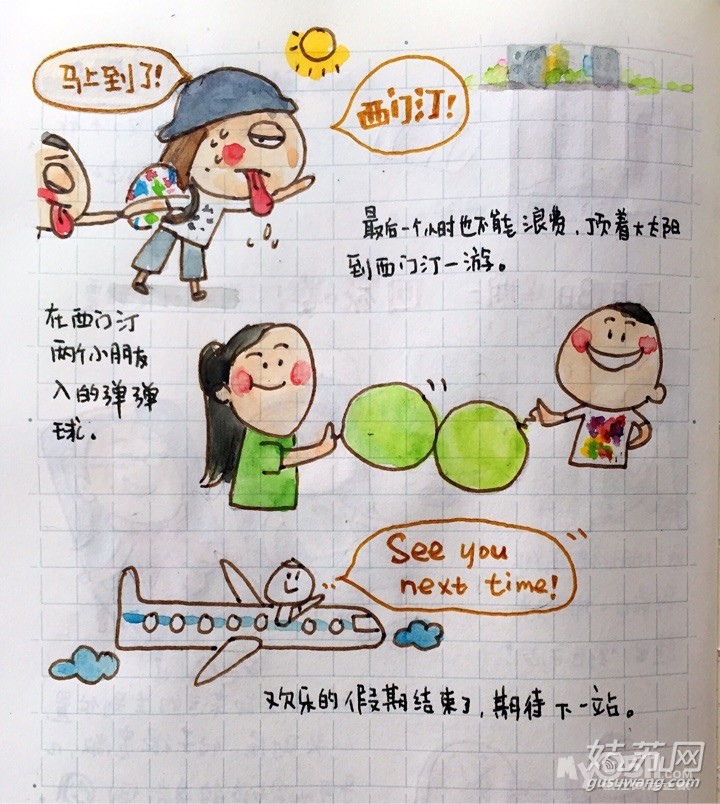 马上到了!
西门汀!
最后一个小时也不能浪费，顶着大太阳
到西门汀一游。
在西门汀
两个小朋友
入的弹弹
球。
See you
next time!
欢乐的假期结束了，期待下一站。
姑苏网
gusuwang.com